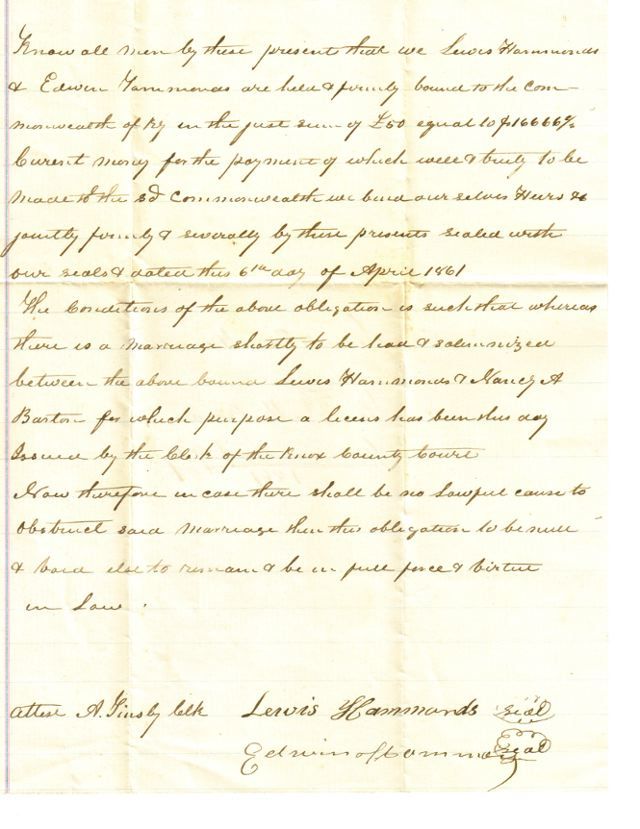 Know all men by these present that we Lewis Hammonds
& Edwin Hammonds are held & firmly bound to the Com-
monwealth of Ky in the just sum of £50 equal to $166 66⅔
Curent money for the payment of which well & truly to be
made to the sd Commonwealth we bind our selvs Heirs &c
jointly firmly & severally by these presents sealed with
our seals & dated this 6th day of April 1861
The Conditions of the above obligation is such that whereas
there is a marriage shortly to be had & solemnized
between the above bound Lewis Hammonds & Nancy A
Barton for which purpose a licens has been this day
Issued by the Clerk of the Knox County Court
Now therefore in case there shall be no lawful cause to
obstruct said marriage then this obligation to be null
& void else to remain & be in full force & virtue
in Law.
attest A. Tinsly Clk Lewis Hammonds seal
Edwin Hammonds seal